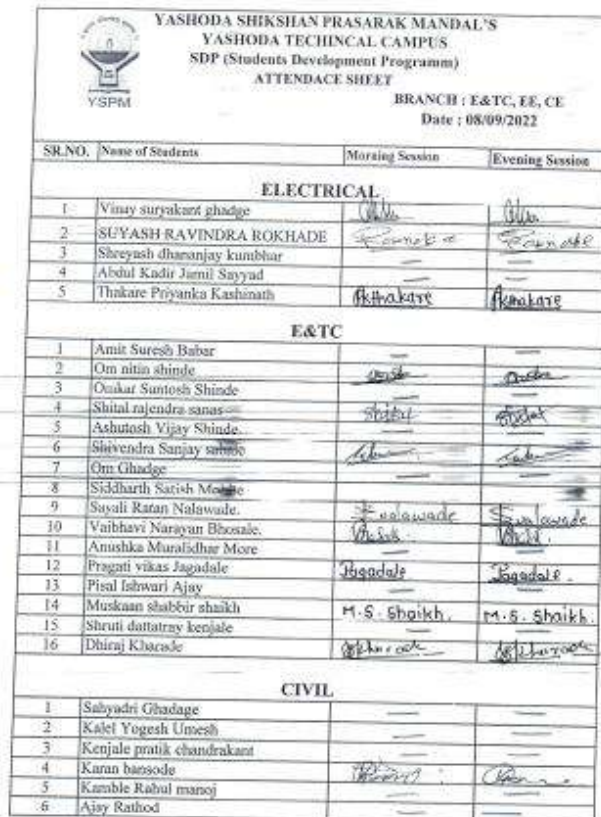 YASHODA SHIKSHAN PRASARAK MANDAL'S
YASHODA TECHINCAL CAMPUS
SDP (Students Development Programm)
ATTENDACE SHEET
YSPM
BRANCH : E&TC, EE, CE
Date : 08/09/2022
SR.NO. Name of Students Morning Session Evening Session
ELECTRICAL
1 Vinay suryakant ghadge
2 SUYASH RAVINDRA ROKHADE
3 Shreyash dhananjay kumbhar
4 Abdul Kadir Jamil Sayyad
5 Thakare Priyanka Kashinath
E&TC
1 Amit Suresh Babar
2 Om nitin shinde
3 Omkar Santosh Shinde
4 Shital rajendra sanas Shital
5 Ashutosh Vijay Shinde.
6 Shivendra Sanjay
7 Om Ghadge
8 Siddharth Satish
9 Sayali Ratan Nalawade.
10 Vaibhavi Narayan Bhosale.
11 Anushka Muralidhar More
12 Pragati vikas Jagadale Jagadale Jagadale.
13 Pisal Ishwari Ajay
14 Muskaan shabbir shaikh M.S. Shaikh. M.S. Shaikh.
15 Shruti dattatray kenjale
16 Dhiraj Kharade
CIVIL
1 Sahyadri Ghadage
2 Kalel Yogesh Umesh
3 Kenjale pratik chandrakant
4 Karan bansode
5 Kamble Rahul manoj
6 Ajay Rathod